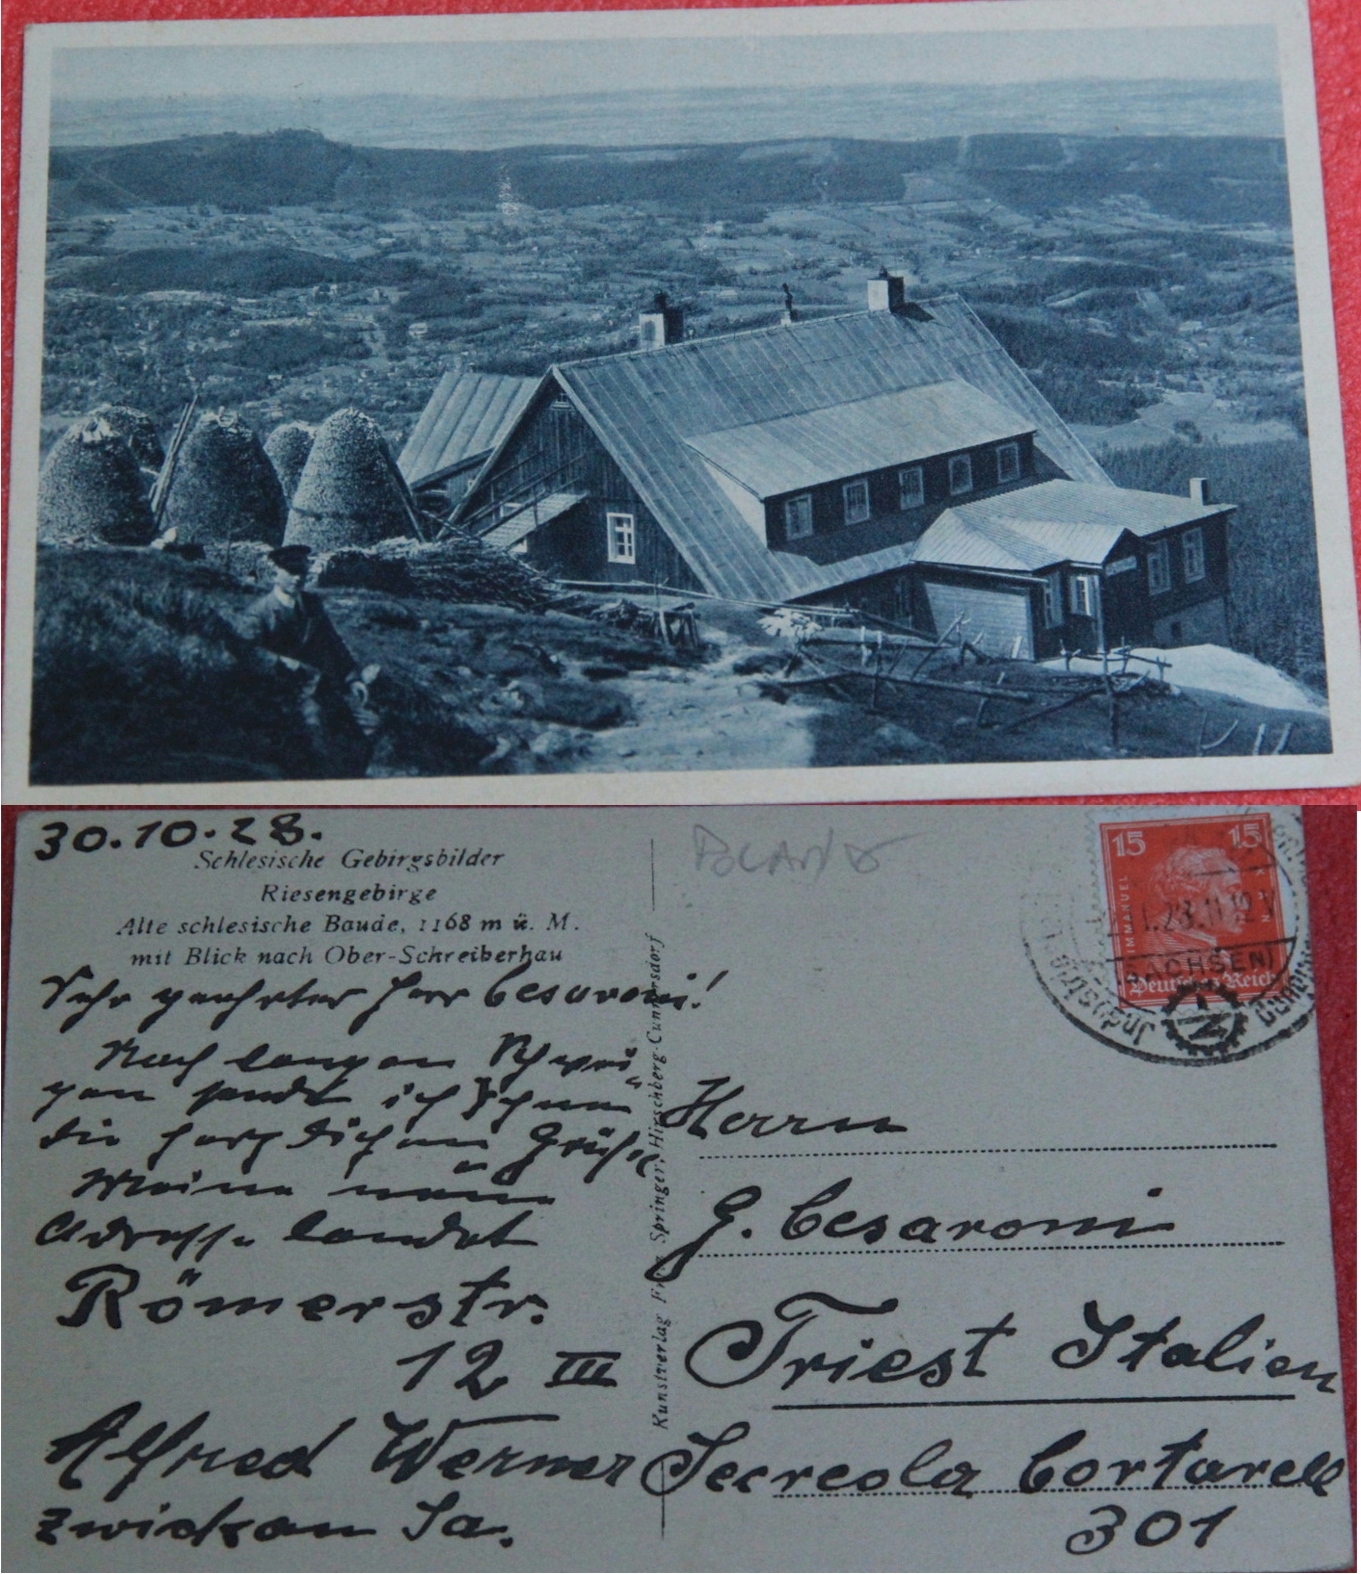 30.10.28.
Schlesische Gebirgsbilder
Riesengebirge
Alte schlesische Baude, 1168 m ü. M.
mit Blick nach Ober-Schreiberhau
Sehr geehrter Herr Cesaroni!
Nach langem Schwei-
gen sende ich Ihnen
die herzlichsten Grüße
Meine neue
Adresse lautet
Römerstr.
12 III
Alfred Werner
Zwickau Sa.
Kunstverlag Springer, Hirschberg-Cunnersdorf
POLAND
15 15
IMMANUEL
Deutsches Reich
28.11-12V
(SACHSEN)
Herrn
G. Cesaroni
Triest Italien
301